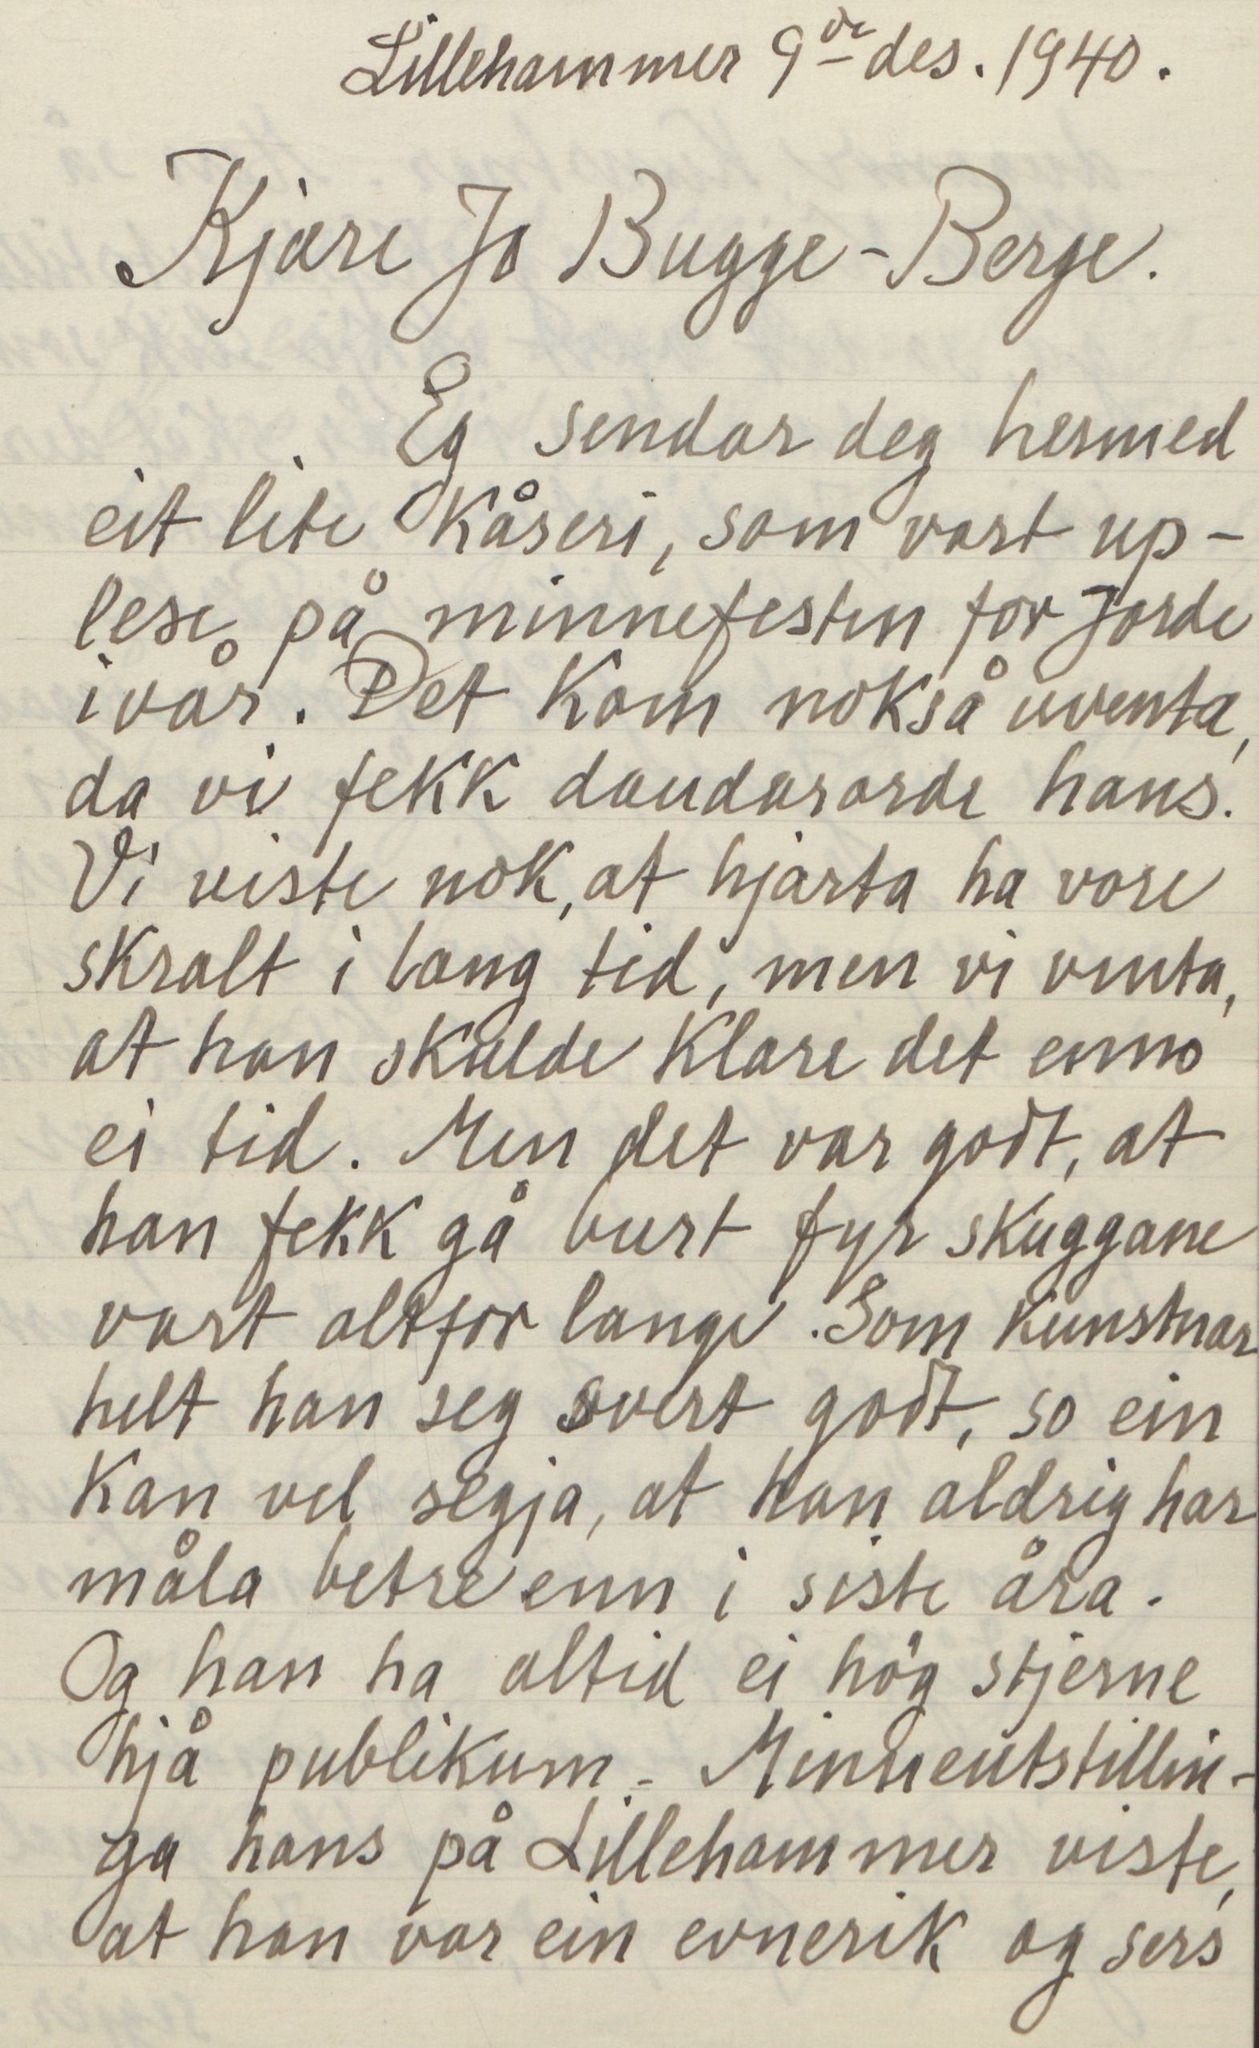 Lillehammer 9de des. 1940.
Kjære Jo Bugge-Berge.
Eg sendar deg hermed
eit lite kåseri, som vart up-
lese på minnefesten for Jorde
ivår. Det kom nokså uventa,
da vi fekk daudarorde hans.
Vi viste nok, at hjarta ha vore
skralt i lang tid, men vi venta,
at han skulde klare det enno
ei tid. Men det var godt, at
han fekk gå burt fyr skuggane
vart altfor lange. Som kunstnar
helt han seg svert godt, so ein
kan vel segja, at han aldrig har
måla betre enn i siste åra.
Og han ha altid ei hög stjerne
hjå publikum. Minneutstillin-
ga hans på Lillehammer viste,
at han var ein evnerik og sers